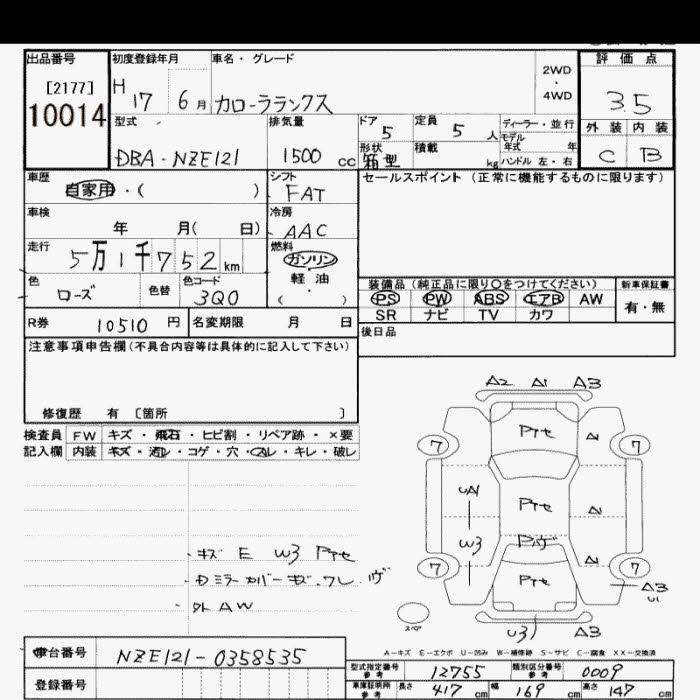 出品番号 初度登録年月 車名・グレード 評価点
[2177]
10014
H 17 6月 カローラランクス 2WD・4WD 3.5
型式 排気量 ドア 5 定員 5人 ディーラー・並行 外装 内装
モデル年式 年
DBA-NZE121 1500cc 形状 箱型 積載 kg ハンドル 左・右 C B
車歴 自家用・( ) シフト FAT セールスポイント(正常に機能するものに限ります)
車検 年 月( 日) 冷房 AAC
走行 5万1千752km 燃料 ガソリン・軽油・( )
色 ローズ 色替 色コード 3Q0
装備品(純正品に限り○をつけてください) 新車保証書
PS PW ABS エアB AW 有・無
SR ナビ TV カワ
R券 10510円 名変期限 月 日 後日品
注意事項申告欄(不具合内容等は具体的に記入して下さい)
修復歴 有 〔箇所 〕
検査員 FW キズ・飛石・ヒビ割・リペア跡・×要
記入欄 内装 キズ・汚レ・コゲ・穴・スレ・キレ・破レ
A2 A1 A3
7 Pte A 7
UA1 Pte A
W3 Pヴ A
7 Pte 7
A3
U1
U3 A3
スペア
・キズ E W3 Pte
・Dミラーカバーキズ.ワレ
・外AW
A-キズ E-エクボ U-凹み W-補修跡 S-サビ C-腐食 XX-交換済
車台番号 NZE121-0358535
登録番号
型式指定番号 参考 12755 類別区分番号 参考 0009
車庫証明用 参考 長さ 417cm 幅 169cm 高さ 147cm